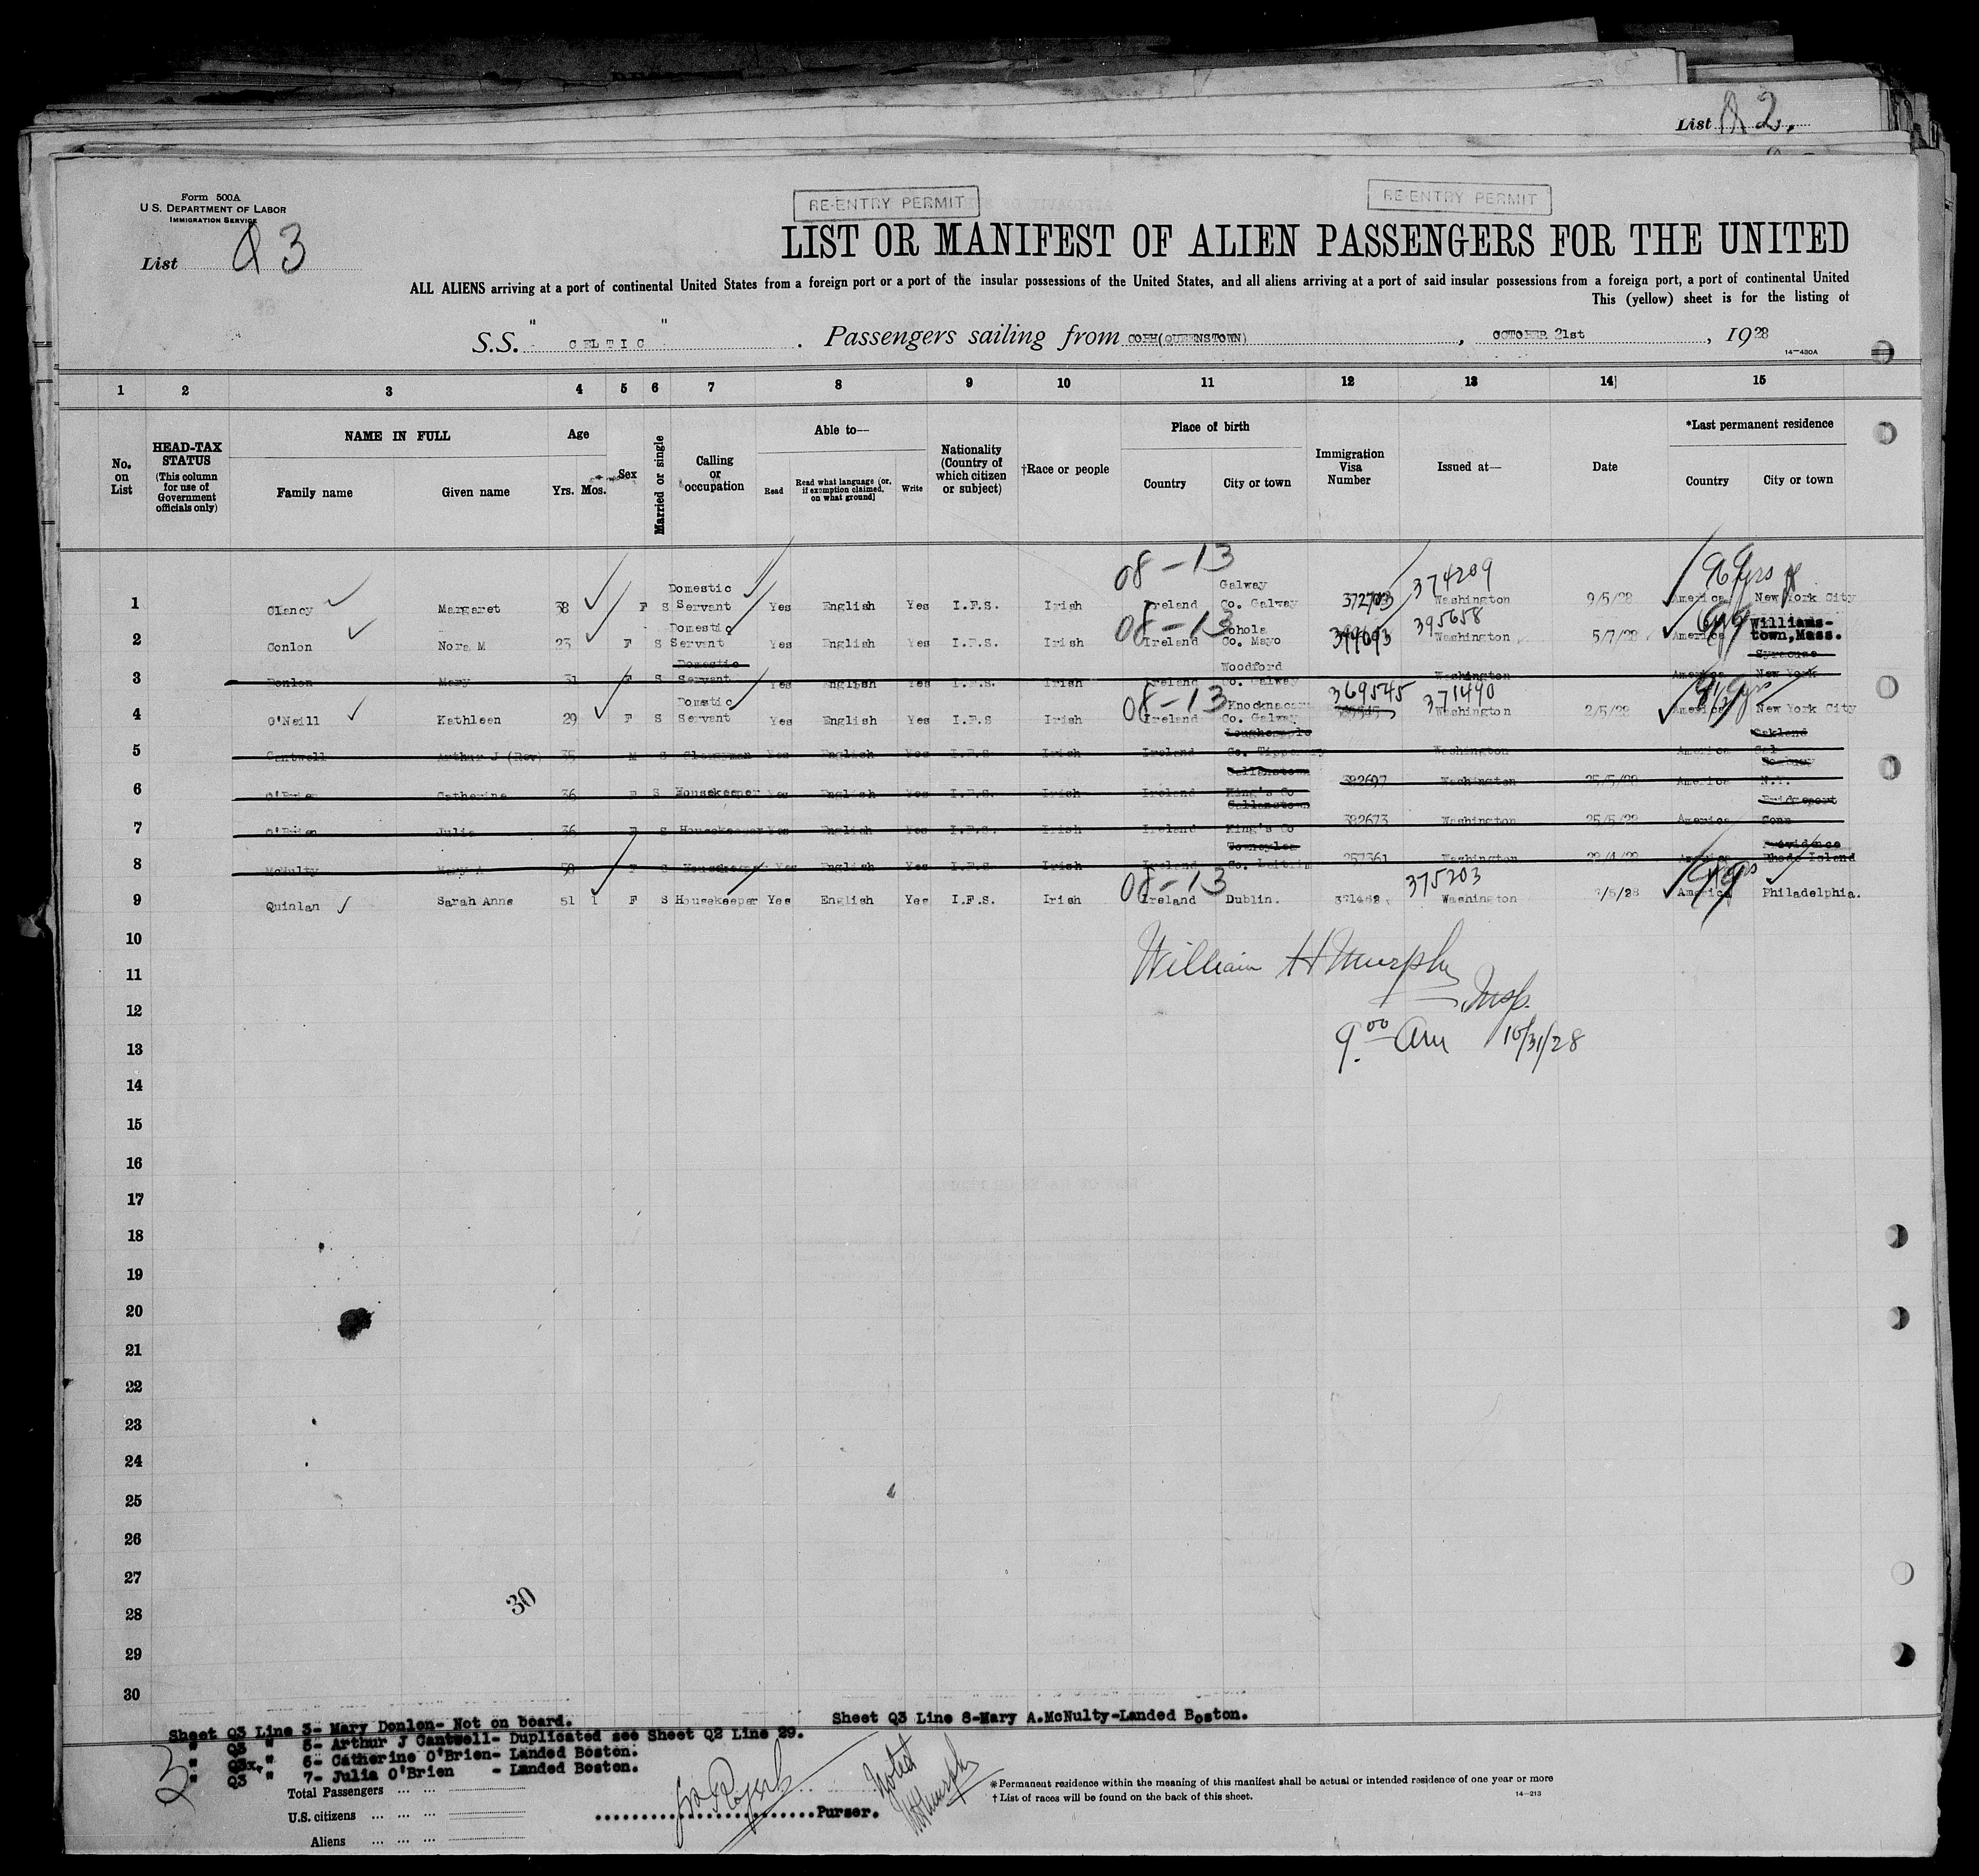 List Q 2.
Form 500A
U.S. DEPARTMENT OF LABOR
IMMIGRATION SERVICE
List Q 3
RE-ENTRY PERMIT RE-ENTRY PERMIT
LIST OR MANIFEST OF ALIEN PASSENGERS FOR THE UNITED
ALL ALIENS arriving at a port of continental United States from a foreign port or a port of the insular possessions of the United States, and all aliens arriving at a port of said insular possessions from a foreign port, a port of continental United
This (yellow) sheet is for the listing of
S.S. "CELTIC". Passengers sailing from COBH(QUEENSTOWN), OCTOBER 21st, 1928
14—430A
1 2 3 4 5 6 7 8 9 10 11 12 13 14 15
No. on List
HEAD-TAX STATUS (This column for use of Government officials only)
NAME IN FULL Family name Given name
Age Yrs. Mos.
Sex
Married or single
Calling or occupation
Able to— Read Read what language (or, if exemption claimed, on what ground) Write
Nationality (Country of which citizen or subject)
†Race or people
Place of birth Country City or town
Immigration Visa Number
Issued at—
Date
*Last permanent residence Country City or town
1 Clancy Margaret 38 F S Domestic Servant Yes English Yes I.F.S. Irish 08-13 Ireland Galway Co. Galway 372703 374209 Washington 9/5/28 America 9 yrs New York City
2 Conlon Nora M 23 F S Domestic Servant Yes English Yes I.F.S. Irish 08-13 Ireland Bohola Co. Mayo 395658 Washington 5/7/28 America Williams-town, Mass.
3 Donlon Mary 31 F S Domestic Servant Yes English Yes I.F.S. Irish Ireland Woodford Co. Galway Washington America Syracuse New York
4 O'Neill Kathleen 29 F S Domestic Servant Yes English Yes I.F.S Irish 08-13 Ireland Co. Galway 369545 371490 Washington 2/5/28 America New York City
5 Cantwell Arthur J (Rev) 35 M S Clergyman Yes English Yes I.F.S. Irish Ireland Co. Tipperary Washington America Oakland Cal
6 O'Brien Catherine 36 F S Housekeeper Yes English Yes I.F.S. Irish Ireland King's Co 382697 Washington 25/5/28 America N.Y.
7 O'Brien Julia 36 F S Housekeeper Yes English Yes I.F.S. Irish Ireland King's Co 382673 Washington 25/5/28 America Bridgeport Conn
8 McNulty Mary A 38 F S Housekeeper Yes English Yes I.F.S. Irish Ireland Co. Leitrim 257361 Washington America Providence Rhode Island
9 Quinlan Sarah Anne 51 1 F S Housekeeper Yes English Yes I.F.S. Irish 08-13 Ireland Dublin. 371468 375203 Washington /5/28 America Philadelphia.
10
William H Murphy
11
Insp.
12
9.00 Am 10/31/28
13
14
15
16
17
18
19
20
21
22
23
24
25
26
27
28
29
30
30
Sheet Q3 Line 3- Mary Donlon- Not on board.
Sheet Q3 Line 8-Mary A.McNulty-Landed Boston.
" Q3 " 5- Arthur J Cantwell- Duplicated see Sheet Q2 Line 29.
" Q3x. " 6- Catherine O'Brien- Landed Boston.
" Q3 " 7- Julia O'Brien - Landed Boston.
Total Passengers
U.S. citizens
Aliens
Purser.
Noted
WHMurphy
*Permanent residence within the meaning of this manifest shall be actual or intended residence of one year or more
† List of races will be found on the back of this sheet.
14—213